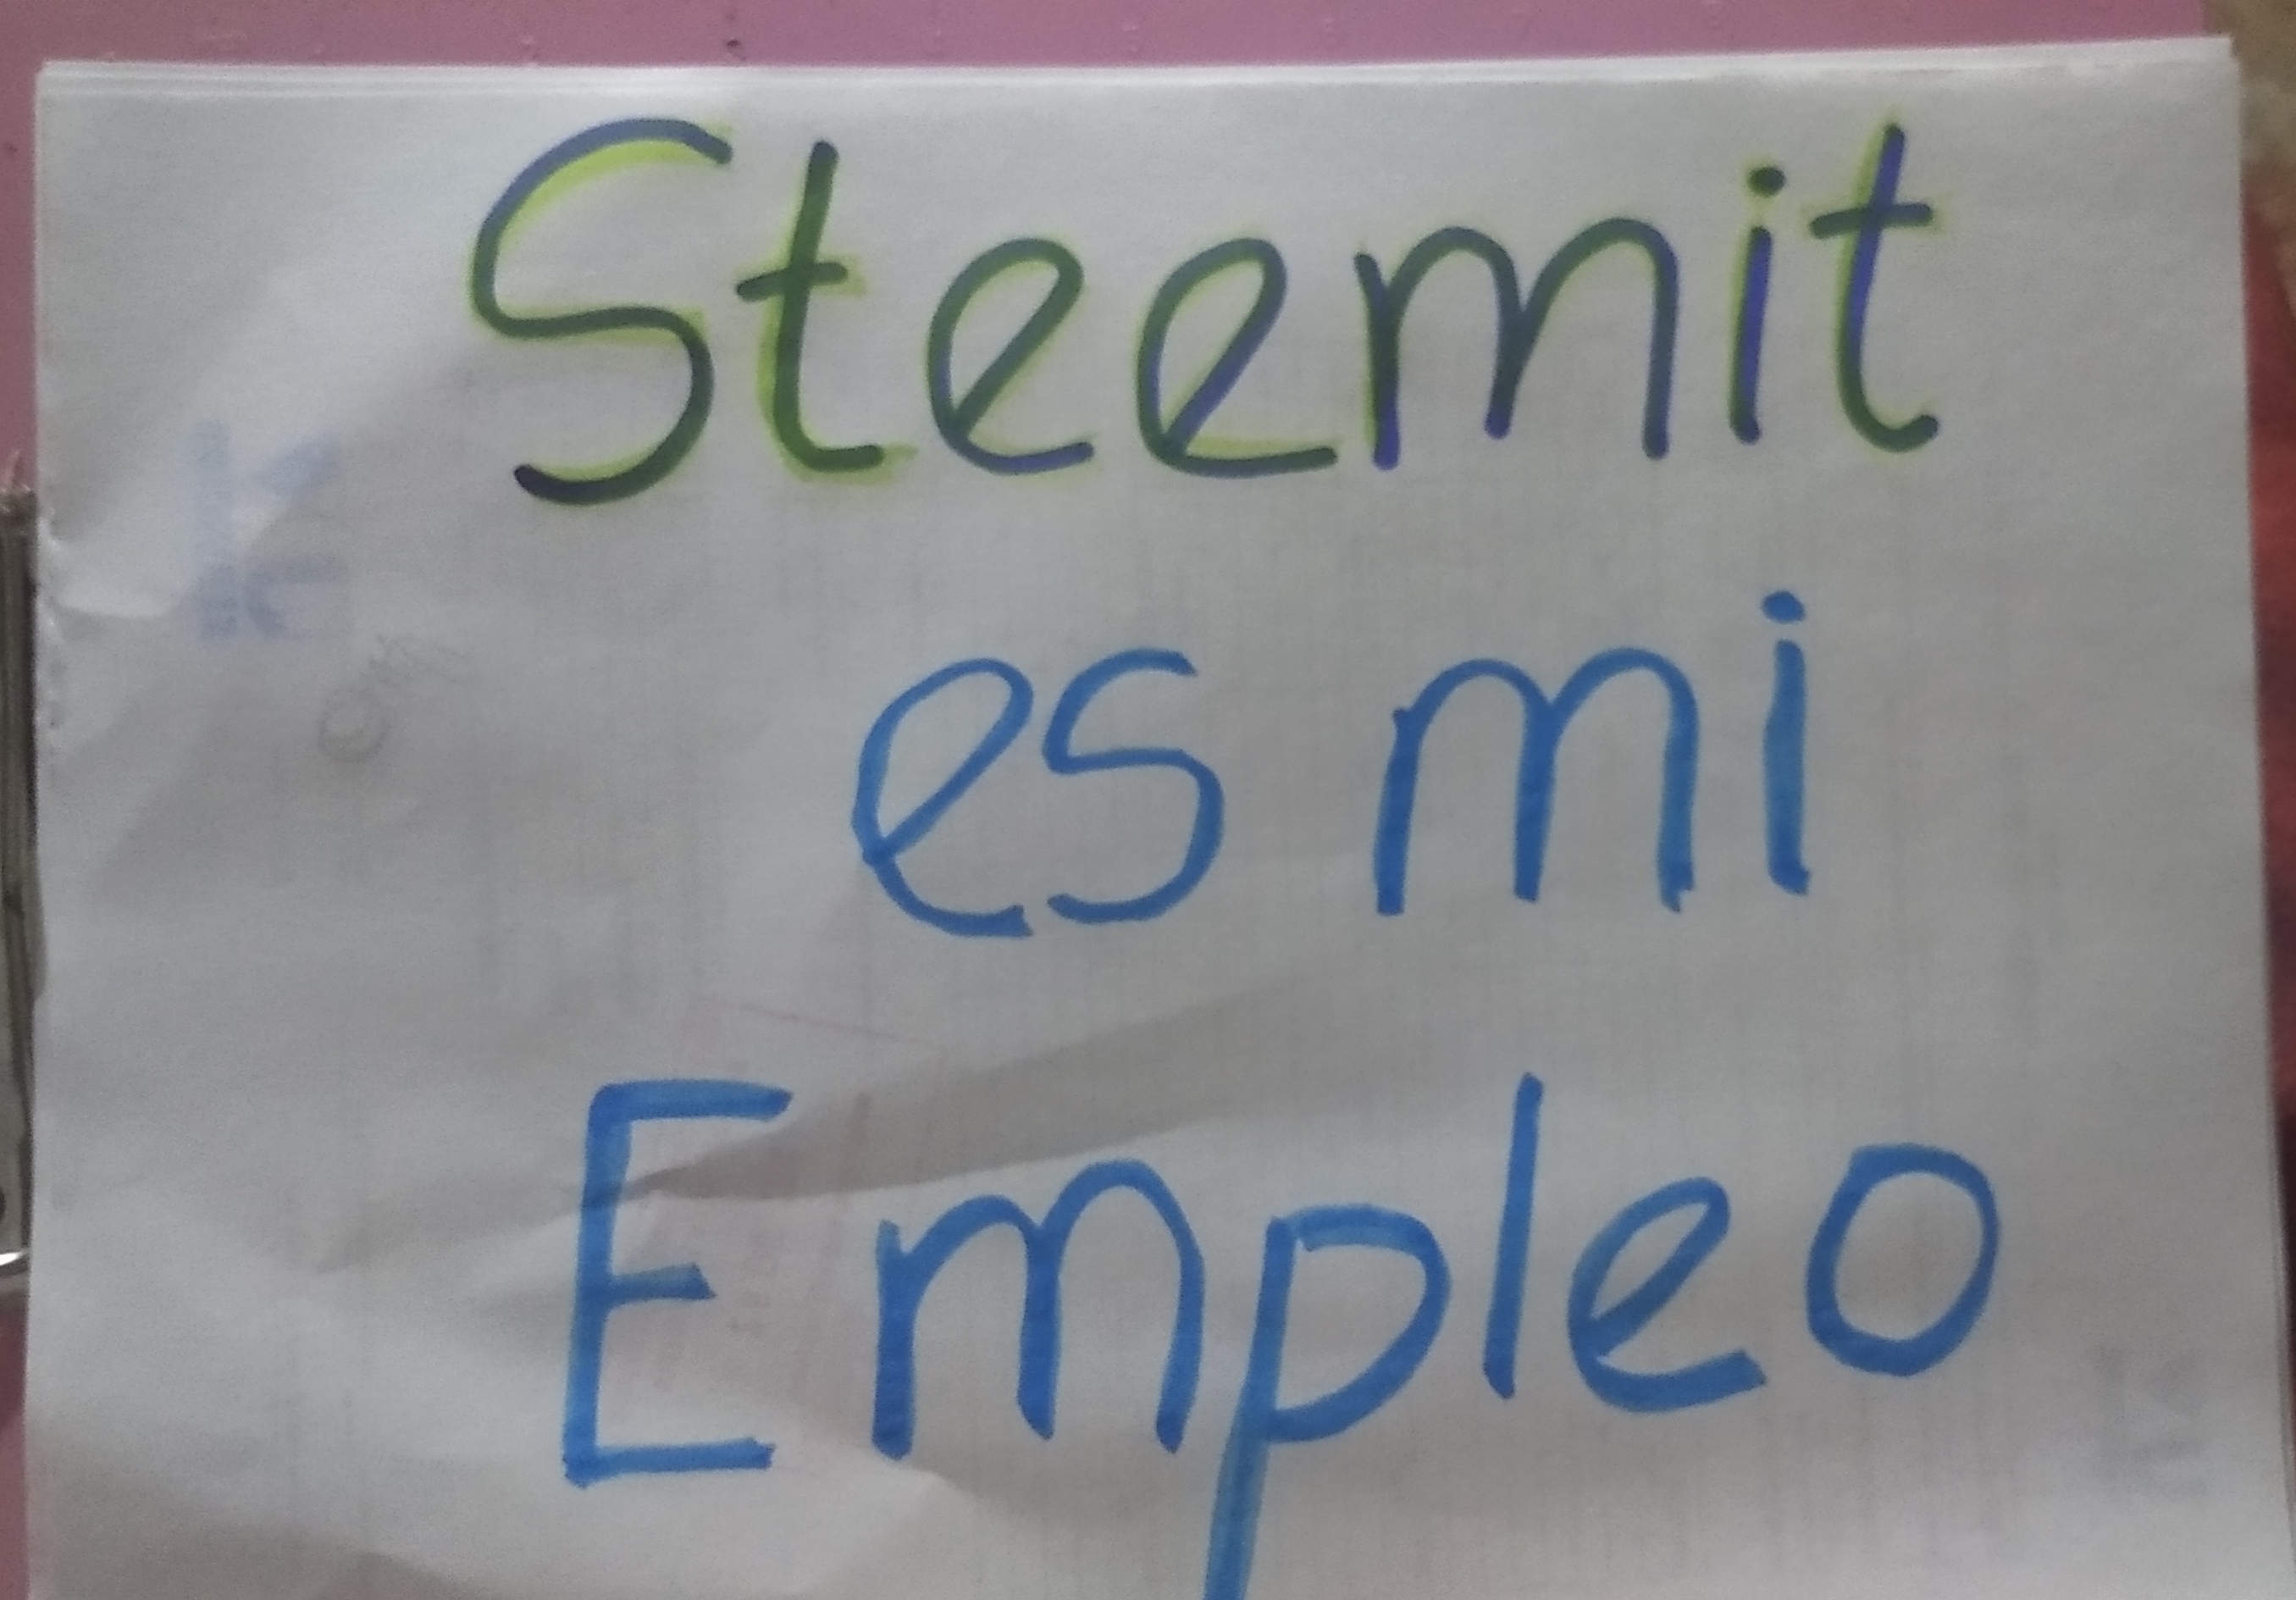 Steemit
es mi
Empleo